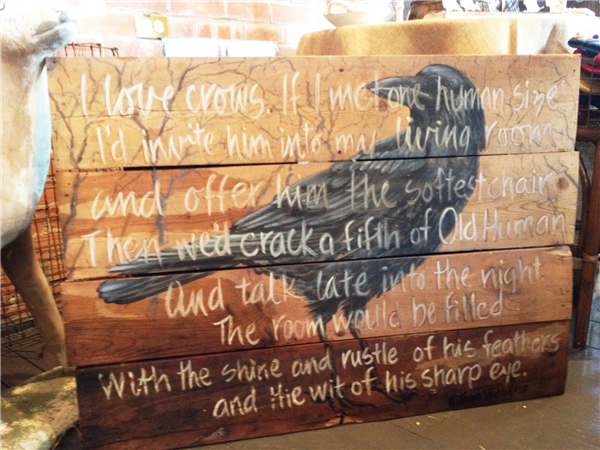 I love crows. If I met one human size
I'd invite him into my living room
and offer him the softest chair
Then we'd crack a fifth of Old Human
And talk late into the night
The room would be filled
With the shine and rustle of his feathers
and the wit of his sharp eye.